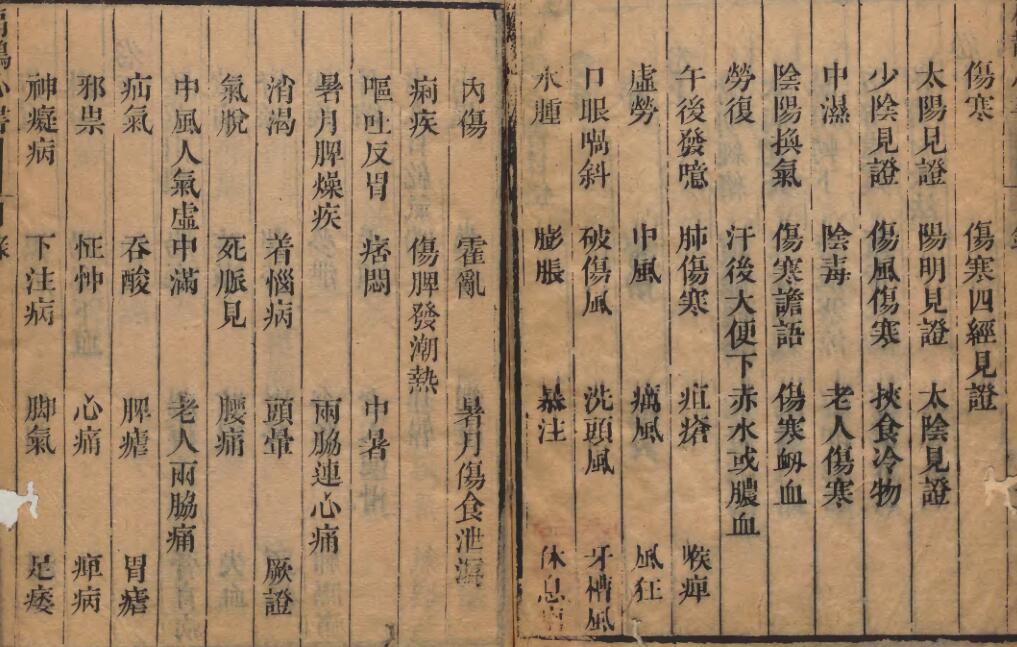 傷寒 傷寒四經見證
太陽見證 陽明見證 太陰見證
少陰見證 傷風傷寒 挾食冷物
中濕 陰毒 老人傷寒
陰陽換氣 傷寒譫語 傷寒衂血
勞復 汗後大便下赤水或膿血
午後發噫 肺傷寒 疽瘡 喉痺
虛勞 中風 癘風 風狂
口眼喎斜 破傷風 洗頭風 牙槽風
水腫 膨脹 暴注 休息痢
內傷 霍亂 暑月傷食泄瀉
痢疾 傷脾發潮熱
嘔吐反胃 痞悶 中暑
暑月脾燥疾 兩脇連心痛
消渴 着惱病 頭暈 厥證
氣脫 死脈見 腰痛
中風人氣虛中滿 老人兩脇痛
疝氣 吞酸 脾瘧 胃瘧
邪祟 怔忡 心痛 痺病
神癡病 下注病 脚氣 足痿